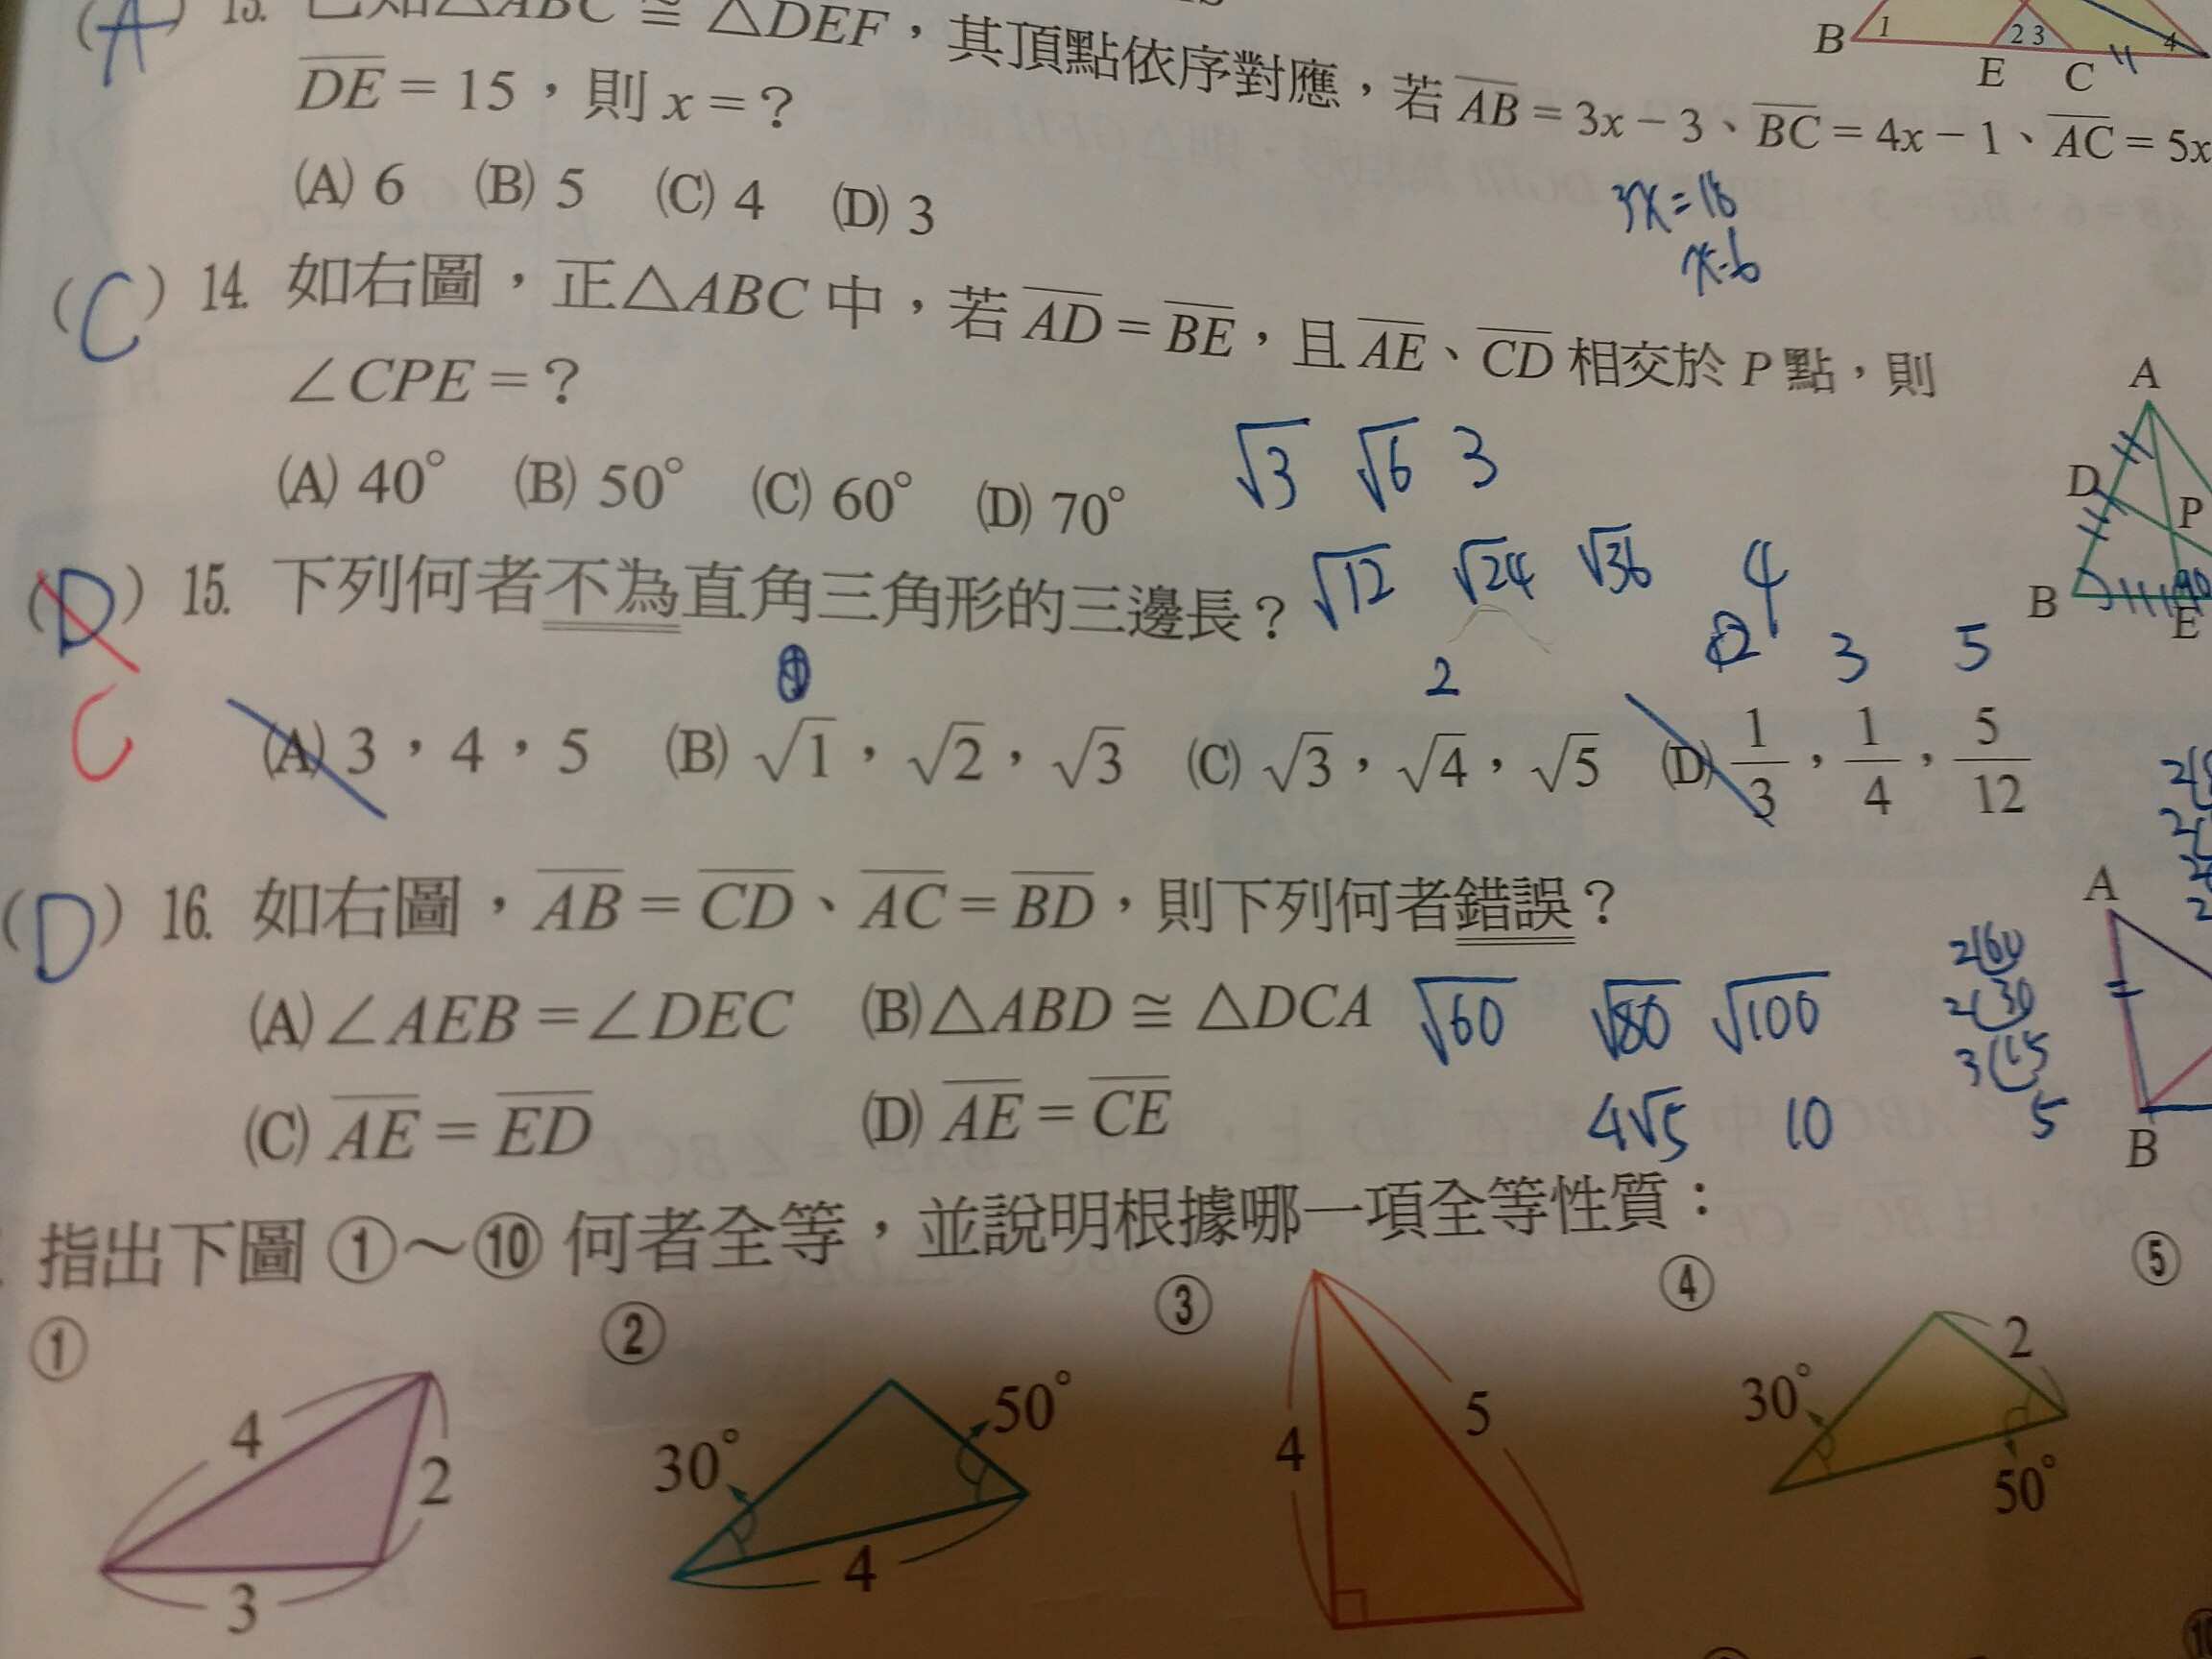 (A) 13. 已知△ABC ≅ △DEF，其頂點依序對應，若 AB = 3x − 3、BC = 4x − 1、AC = 5x
DE = 15，則 x = ?
(A) 6 (B) 5 (C) 4 (D) 3
3x = 18
x = 6
B 1 2 3 4
E C
(C) 14. 如右圖，正△ABC 中，若 AD = BE，且 AE、CD 相交於 P 點，則
∠CPE = ?
(A) 40° (B) 50° (C) 60° (D) 70°
√3 √6 3
√12 √24 √36
A
D
P
B
E
(D) 15. 下列何者不為直角三角形的三邊長？
C
2
4 3 5
(A) 3，4，5 (B) √1，√2，√3 (C) √3，√4，√5 (D) 1/3，1/4，5/12
(D) 16. 如右圖，AB = CD、AC = BD，則下列何者錯誤？
(A) ∠AEB = ∠DEC (B) △ABD ≅ △DCA
(C) AE = ED (D) AE = CE
√60 √80 √100
4√5 10
2 60
2 30
3 15
5
A
B
指出下圖 ①～⑩ 何者全等，並說明根據哪一項全等性質：
① ② ③ ④ ⑤
4 2 3
30° 50° 4
4 5
30° 2 50°